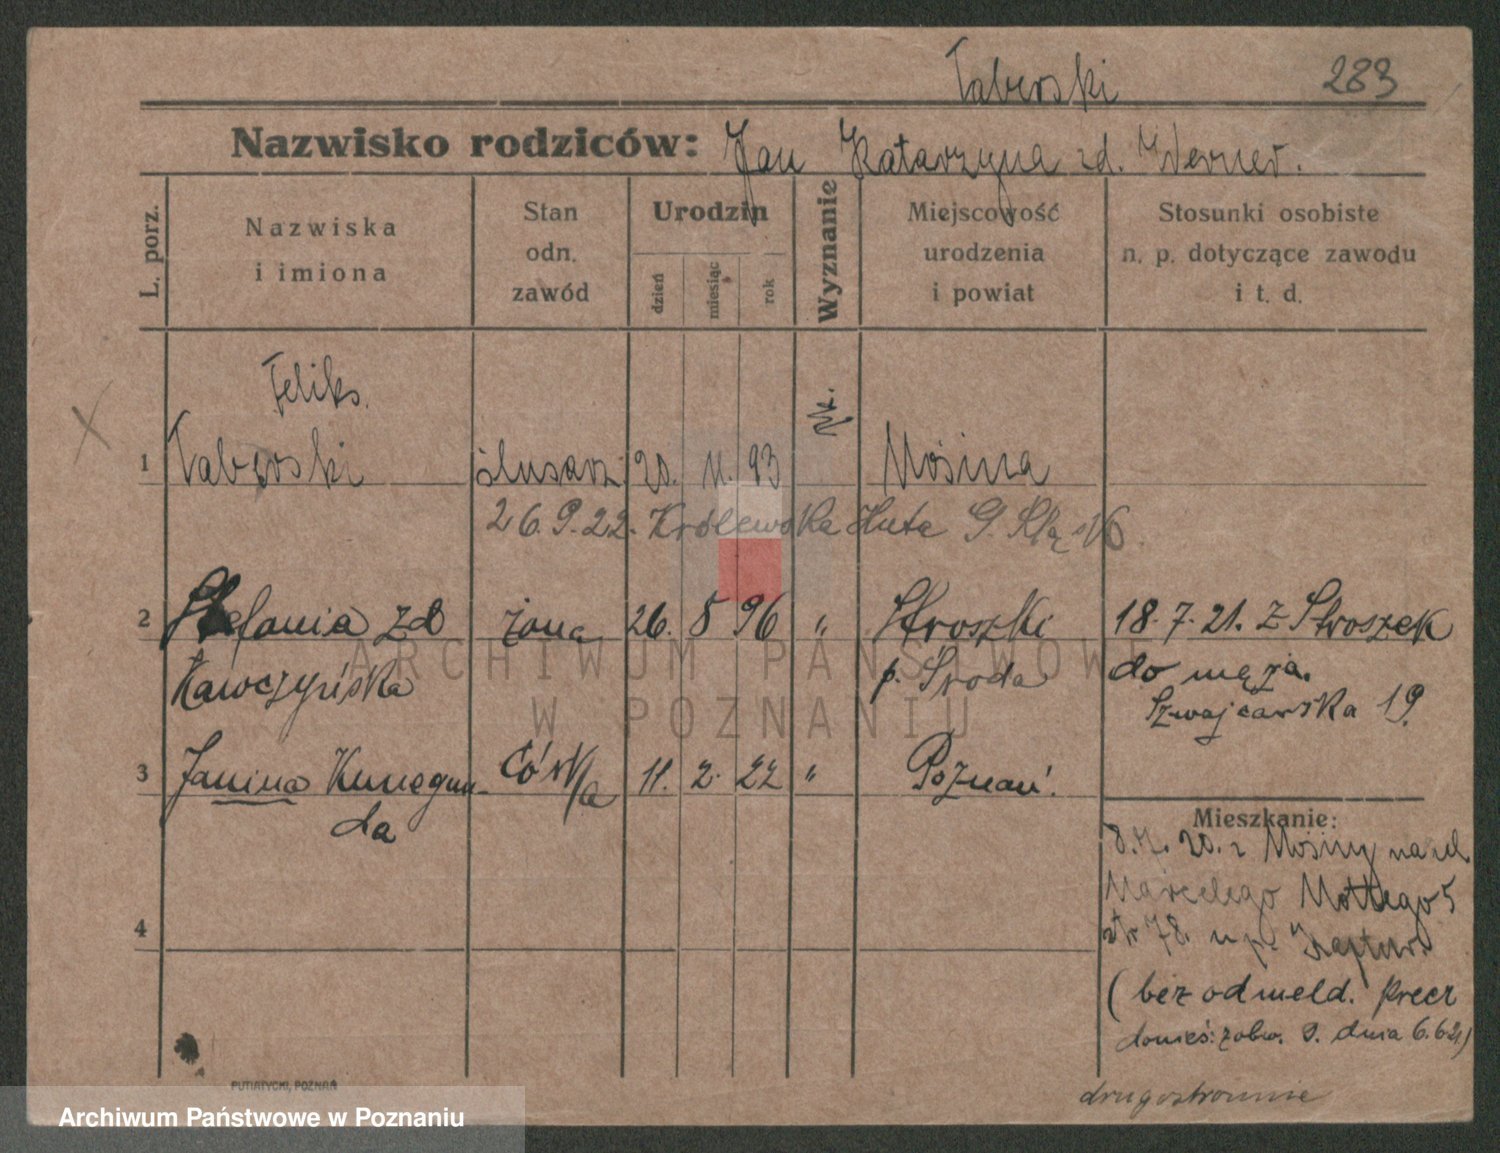 Taberski
283
Nazwisko rodziców: Jan Katarzyna zd. Werner.
L. porz.
Nazwiska
i imiona
Stan
odn.
zawód
Urodzin
dzień
miesiąc
rok
Wyznanie
Miejscowość
urodzenia
i powiat
Stosunki osobiste
n. p. dotyczące zawodu
i t. d.
Feliks.
1 Taberski ślusarz 20. 11. 93 rk. Mosina
26.9.22. Królewska Huta G. Śląsk
2 Stefania zd żona 26. 5 96 " Stroszki 18.7.21. z Stroszek
Kawczyńska p. Środa do męża.
Szwajcarska 19.
3 Janina Kunegun- córka 11. 2. 22 " Poznań.
da
Mieszkanie:
20. z Mosiny na ul.
Marcelego Mottego 5
str 78. u p.
4
(bez odmeld.
donieś: zobw. dnia 6.6.21)
drugostronnie
PUTIATYCKI, POZNAŃ
ARCHIWUM PAŃSTWOWE
W POZNANIU
Archiwum Państwowe w Poznaniu